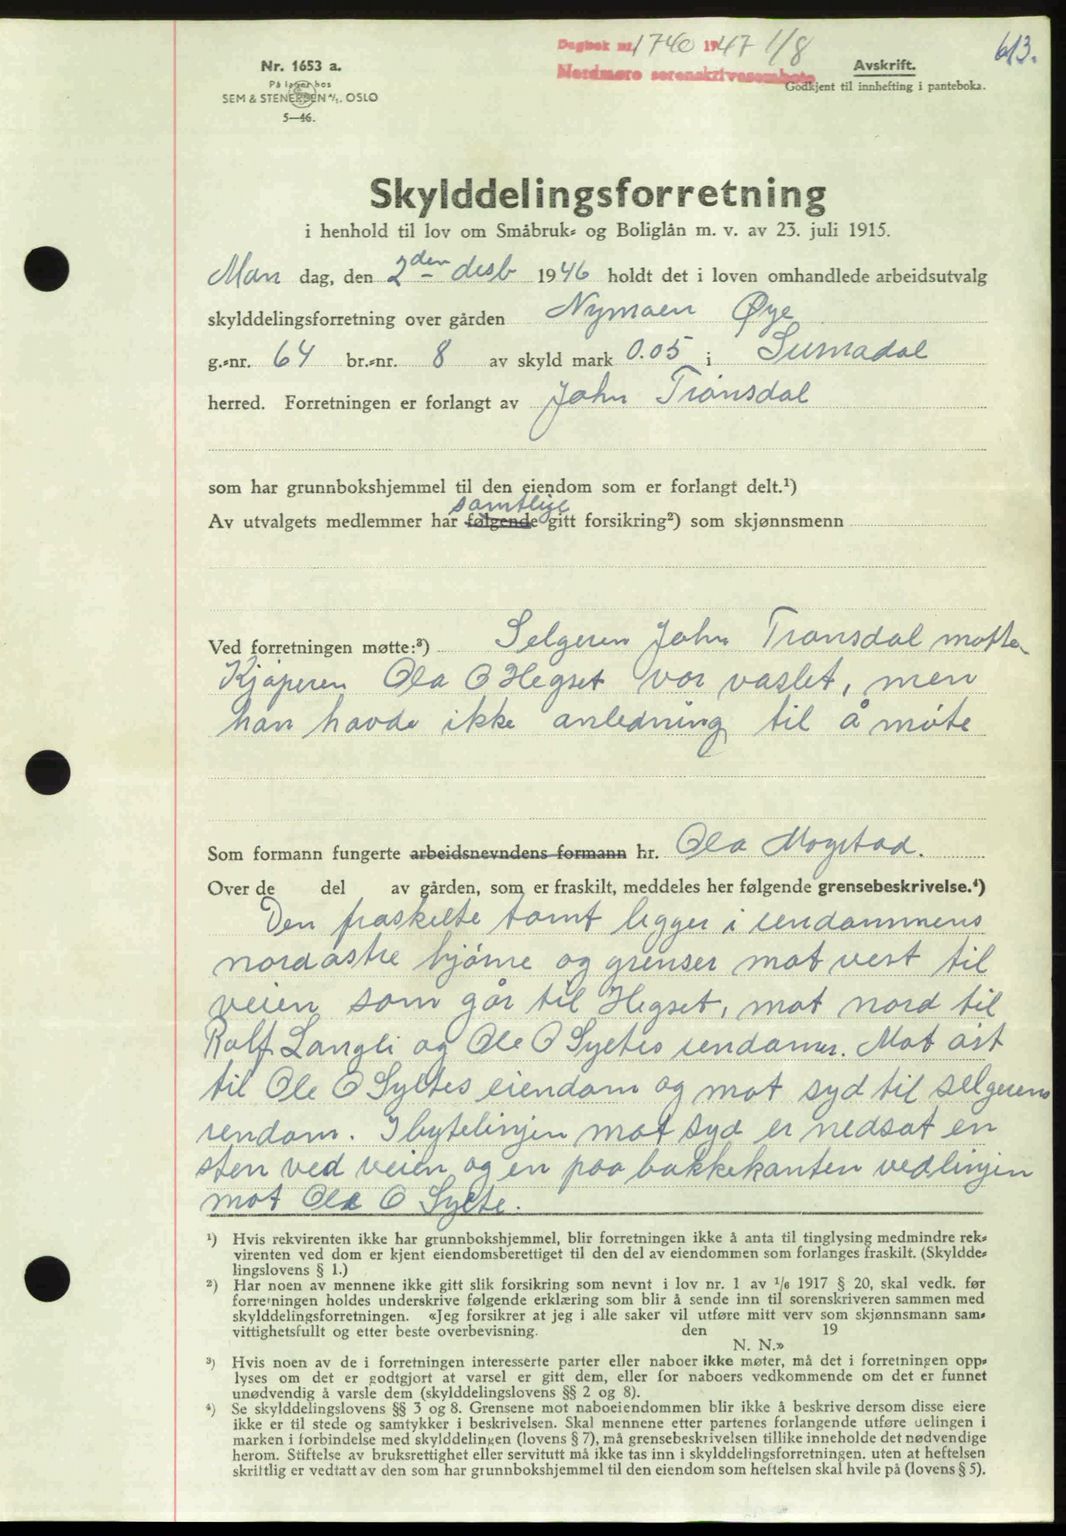 Dagbok nr. 1740 1947 1/8
613.
Nordmøre sorenskriverembete
Nr. 1653 a.
På lager hos
SEM & STENERSEN A/S. OSLO
5—46.
Avskrift.
Godkjent til innhefting i panteboka.
Skylddelingsforretning
i henhold til lov om Småbruk- og Boliglån m. v. av 23. juli 1915.
Man dag, den 2den desb 1946 holdt det i loven omhandlede arbeidsutvalg
skylddelingsforretning over gården Nymoen Øye
g.-nr. 64 br.-nr. 8 av skyld mark 0.05 i Surnadal
herred. Forretningen er forlangt av John Transdal
som har grunnbokshjemmel til den eiendom som er forlangt delt.¹)
samtlige
Av utvalgets medlemmer har følgende gitt forsikring²) som skjønnsmenn
Ved forretningen møtte:³) Selgeren John Transdal møtte
Kjøperen Ola O Hegset var vaslet, men
han havde ikke anledning til å møte
Som formann fungerte arbeidsnevndens formann hr. Ola Mogstad.
Over de del av gården, som er fraskilt, meddeles her følgende grensebeskrivelse.⁴)
Den fraskilte tomt ligger i eiendommens
nordøstre hjørne og grenser mot vest til
veien som går til Hegset, mot nord til
Rolf Langli og Ole O Syltes eiendomer. Mot øst
til Ole O Syltes eiendom og mot syd til selgerens
eiendom. I bytelinjen mot syd er nedsat en
sten ved veien og en paa bakkekanten ved linjen
mot Ole O Sylte.
¹) Hvis rekvirenten ikke har grunnbokshjemmel, blir forretningen ikke å anta til tinglysing medmindre rek-
virenten ved dom er kjent eiendomsberettiget til den del av eiendommen som forlanges fraskilt. (Skyldde-
lingslovens § 1.)
²) Har noen av mennene ikke gitt slik forsikring som nevnt i lov nr. 1 av 1/6 1917 § 20, skal vedk. før
forretningen holdes underskrive følgende erklæring som blir å sende inn til sorenskriveren sammen med
skylddelingsforretningen. «Jeg forsikrer at jeg i alle saker vil utføre mitt verv som skjønnsmann sam-
vittighetsfullt og etter beste overbevisning. den 19
N. N.»
³) Hvis noen av de i forretningen interesserte parter eller naboer ikke møter, må det i forretningen opp-
lyses om det er godtgjort at varsel er gitt dem, eller for naboers vedkommende om det er funnet
unødvendig å varsle dem (skylddelingslovens §§ 2 og 8).
⁴) Se skylddelingslovens §§ 3 og 8. Grensene mot naboeiendommen blir ikke å beskrive dersom disse eiere
ikke er til stede og samtykker i beskrivelsen. Skal mennene etter partenes forlangende utføre delingen i
marken i forbindelse med skylddelingen (lovens § 7), må grensebeskrivelsen tillike inneholde det nødvendige
herom. Stiftelse av bruksrettighet eller servitutt må ikke tas inn i skylddelingsforretningen. uten at heftelsen
skriftlig er vedtatt av den som har grunnbokshjemmel til den eiendom som heftelsen skal hvile på (lovens § 5).